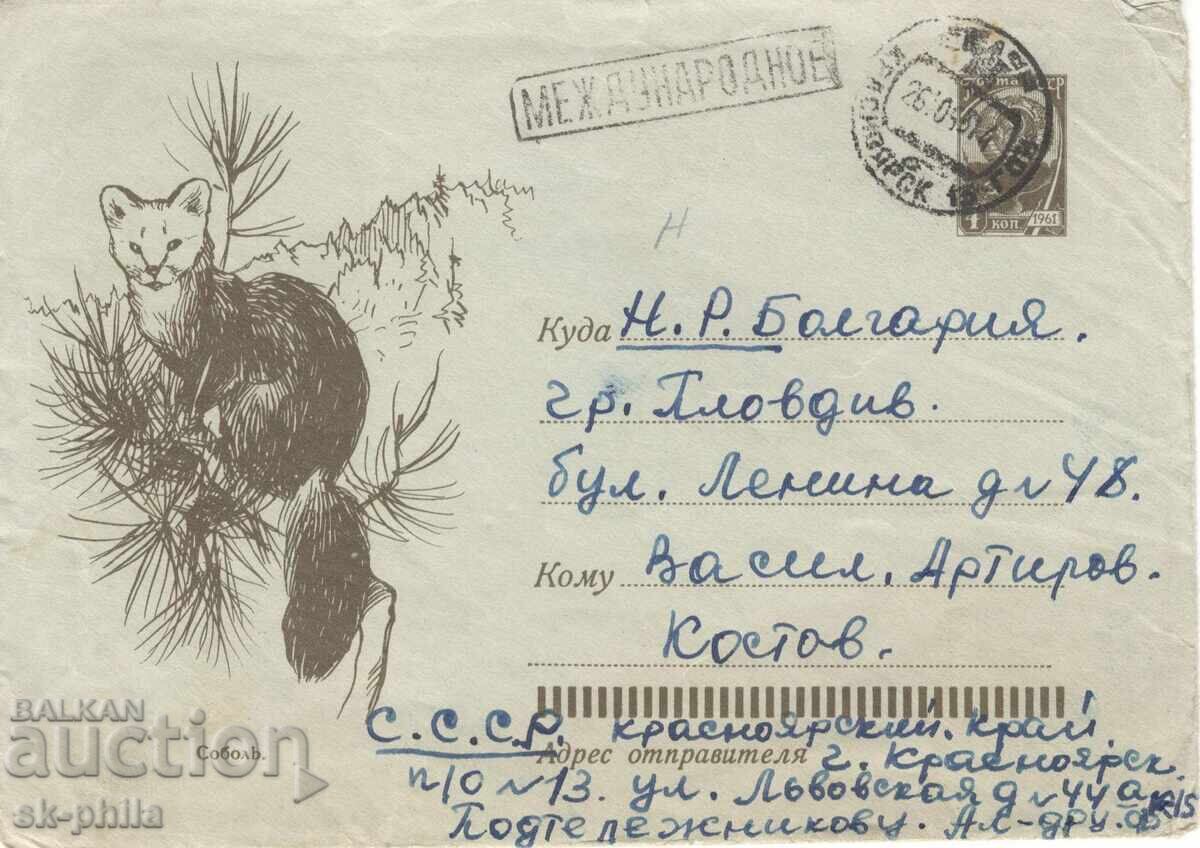 МЕЖДУНАРОДНОЕ
ПОЧТА СССР
4 КОП 1961
Н
Куда Н. Р. Болгария.
гр. Пловдив.
бул. Ленина д № 48.
Кому Васил. Артиров.
Костов.
С.С.С.Р. красноярский. край.
Адрес отправителя
г. Красноярск.
п/о № 13. ул. Львовская д № 44 а
Подтележникову. Ал-дру.
Соболь.
BALKAN
auction
sk-phila